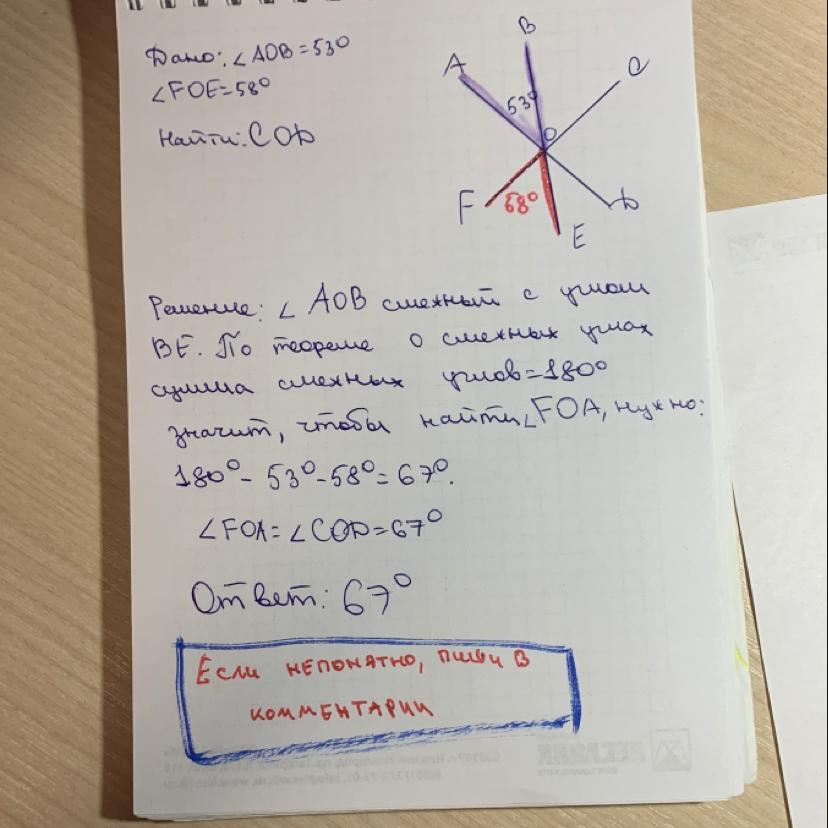 Дано: ∠AOB=53°
∠FOE=58°
Найти: COD
A
B
C
53°
O
F
58°
D
E
Решение: ∠AOB смежный с углом
BE. По теореме о смежных углах
сумма смежных углов=180°
значит, чтобы найти ∠FOA, нужно:
180° - 53° - 58° = 67°.
∠FOA = ∠COD = 67°
Ответ: 67°
Если непонятно, пиши в
комментарии